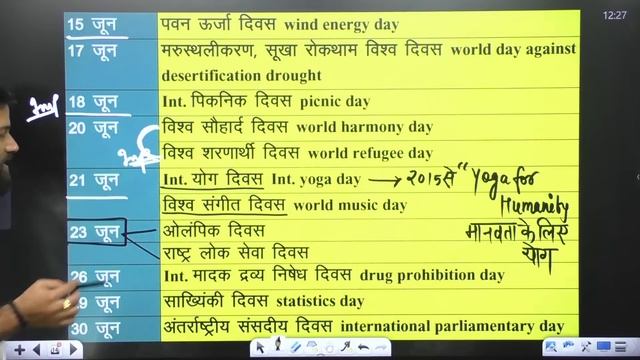 12:27
15 जून पवन ऊर्जा दिवस wind energy day
17 जून मरुस्थलीकरण, सूखा रोकथाम विश्व दिवस world day against
desertification drought
18 जून Int. पिकनिक दिवस picnic day
20 जून विश्व सौहार्द दिवस world harmony day
विश्व शरणार्थी दिवस world refugee day
21 जून Int. योग दिवस Int. yoga day → 2015 से "Yoga for
Humanity
विश्व संगीत दिवस world music day
23 जून ओलंपिक दिवस मानवता के लिए
योग
राष्ट्र लोक सेवा दिवस
26 जून Int. मादक द्रव्य निषेध दिवस drug prohibition day
29 जून साख्यिंकी दिवस statistics day
30 जून अंतर्राष्ट्रीय संसदीय दिवस international parliamentary day